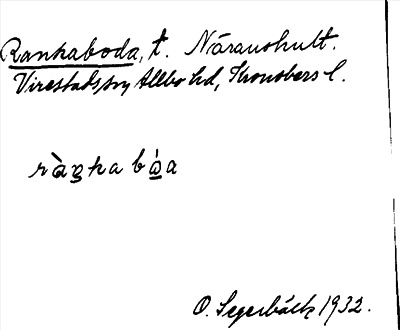 Rankaboda, t. Näraushult.
Virestads sn, Allbo hd, Kronobergs l.
ràŋka bá̱a
O. Segerbäck 1932.